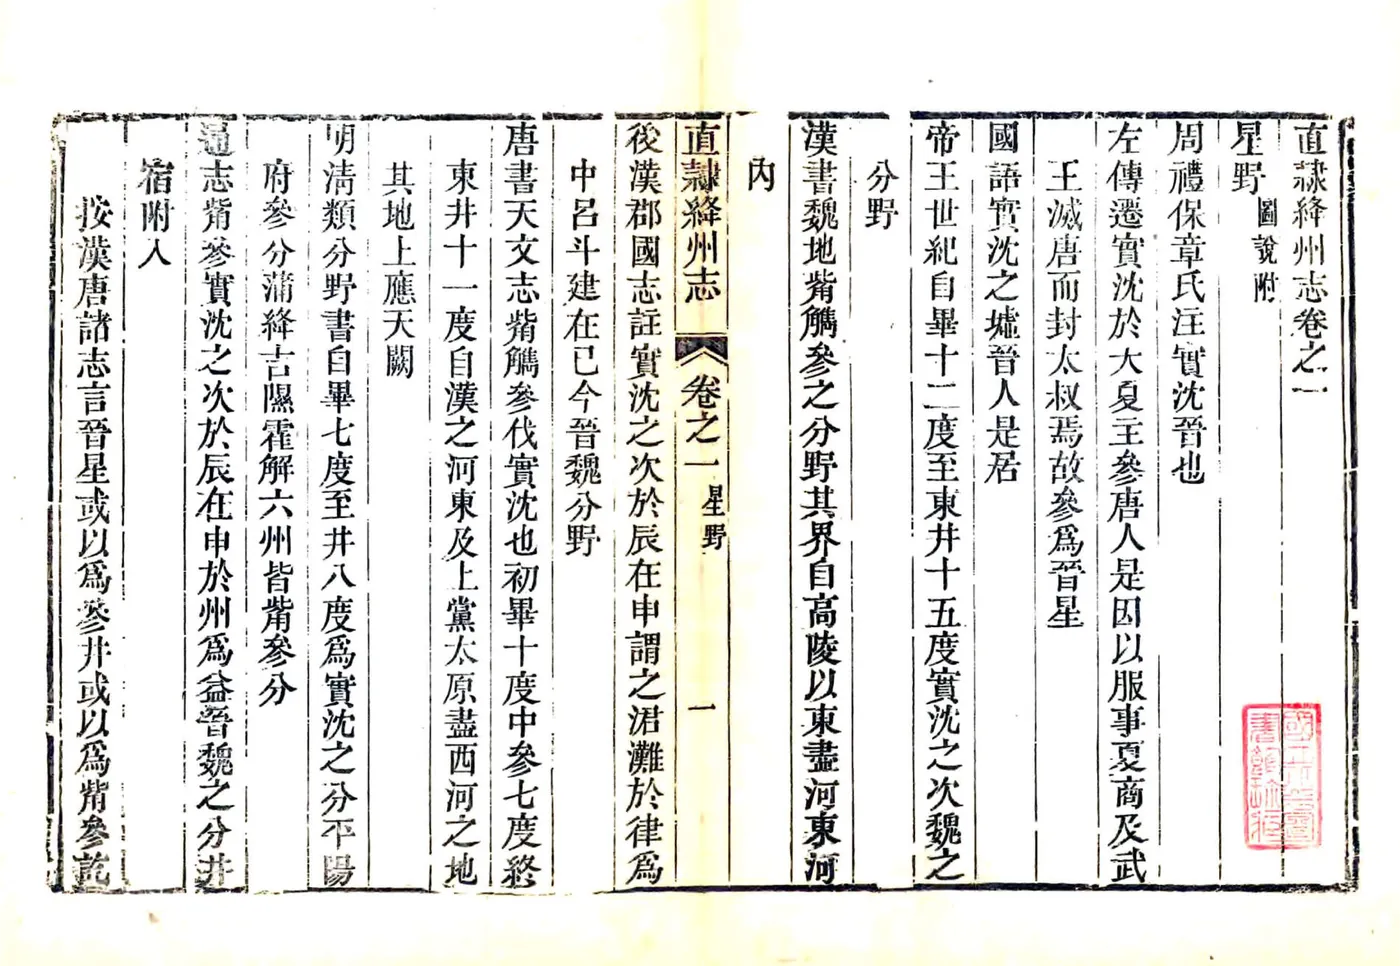 直隷絳州志卷之一
星野圖說附
周禮保章氏注實沈晉也
左傳遷實沈於大夏主參唐人是因以服事夏商及武
王滅唐而封太叔焉故參爲晉星
國語實沈之墟晉人是居
帝王世紀自畢十二度至東井十五度實沈之次魏之
分野
漢書魏地觜觿參之分野其界自高陵以東盡河東河
內
直隷絳州志 卷之一 星野 一
後漢郡國志註實沈之次於辰在申謂之涒灘於律爲
中呂斗建在巳今晉魏分野
唐書天文志觜觿參伐實沈也初畢十度中參七度終
東井十一度自漢之河東及上黨太原盡西河之地
其地上應天闕
明清類分野書自畢七度至井八度爲實沈之分平陽
府參分蒲絳吉隰霍解六州皆觜參分
通志觜參實沈之次於辰在申於州爲益晉魏之分井
宿附入
按漢唐諸志言晉星或以爲參井或以爲觜參訖